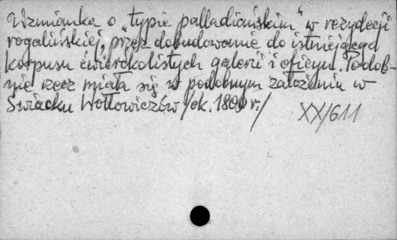 Wzmianka o „typie palladiańskim" w rezydecji
rogalińskiej, przez dobudowanie do istniejącego
korpusu ćwierćkolistych galerii i oficyn. Podob-
nie rzecz miała się w podobnym założeniu w
Świacku Wołłowiczów /ok. 18 r./
XX/611